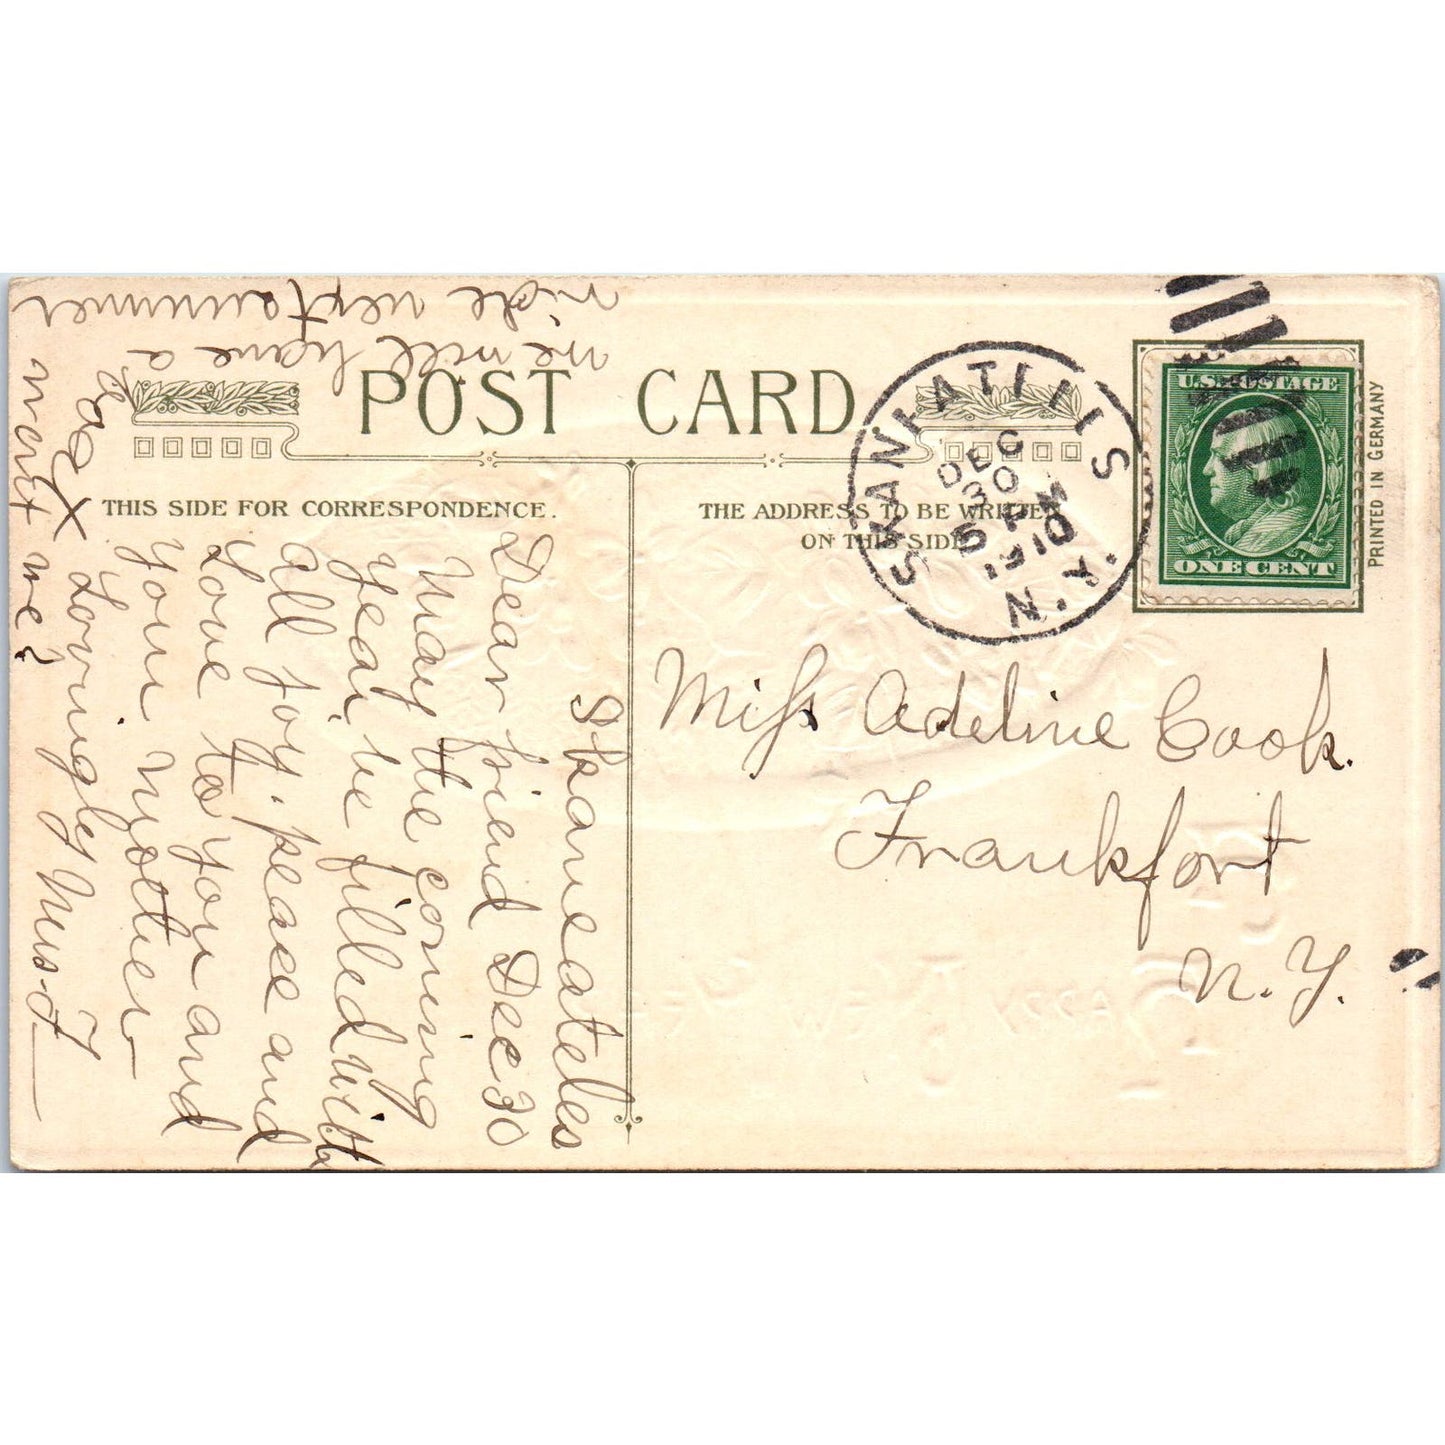 POST CARD
THIS SIDE FOR CORRESPONDENCE.
THE ADDRESS TO BE WRITTEN
ON THIS SIDE
SKANEATELES
DEC
30
5 PM
1910
N.Y.
U.S. POSTAGE
ONE CENT
PRINTED IN GERMANY
Miss Adeline Cook.
Frankfort
N. Y.
Skaneateles
Dear friend Dec 30
May the coming
year be filled with
all joy. please and
Love to you and
your Mother
Lovingly Mrs. F
we will have a
ride next summer
wont we?
HAPPY NEW YEAR